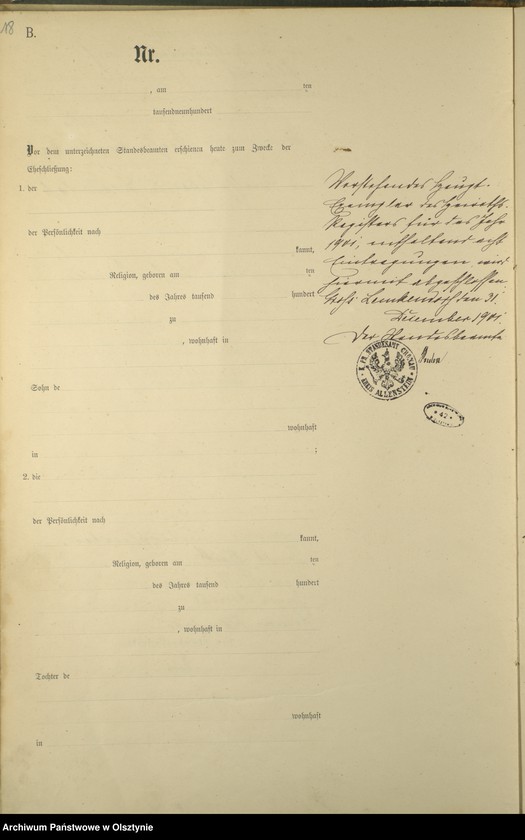 18
B.
Nr.
, am ten
tausendneunhundert
Vor dem unterzeichneten Standesbeamten erschienen heute zum Zwecke der
Eheschließung:
1. der
der Persönlichkeit nach
kannt,
Religion, geboren am ten
des Jahres tausend hundert
zu
, wohnhaft in
Sohn de
wohnhaft
in ;
2. die
der Persönlichkeit nach
kannt,
Religion, geboren am ten
des Jahres tausend hundert
zu
, wohnhaft in
Tochter de
wohnhaft
in
Vorstehendes Haupt-
Exemplar des Heiraths-
Registers für das Jahr
1901, enthaltend acht
Eintragungen wird
hiermit abgeschlossen.
den 31.
December 1901.
Der Standesbeamte
K. PR. STANDESAMT
KREIS ALLENSTEIN
* 42 *
Archiwum Państwowe w Olsztynie